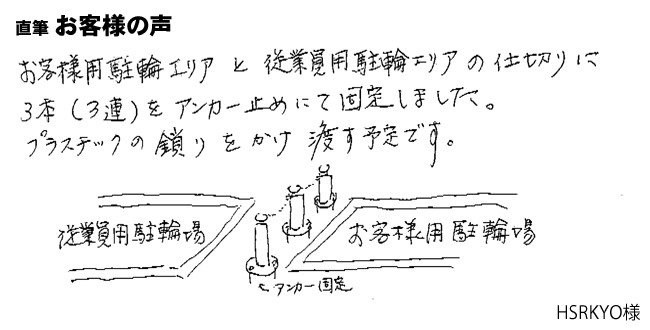 直筆 お客様の声
お客様用駐輪エリアと従業員用駐輪エリアの仕切りに
3本(3連)をアンカー止めにて固定しました。
プラスチックの鎖りをかけ渡す予定です。
従業員用駐輪場
お客様用駐輪場
アンカー固定
HSRKYO様